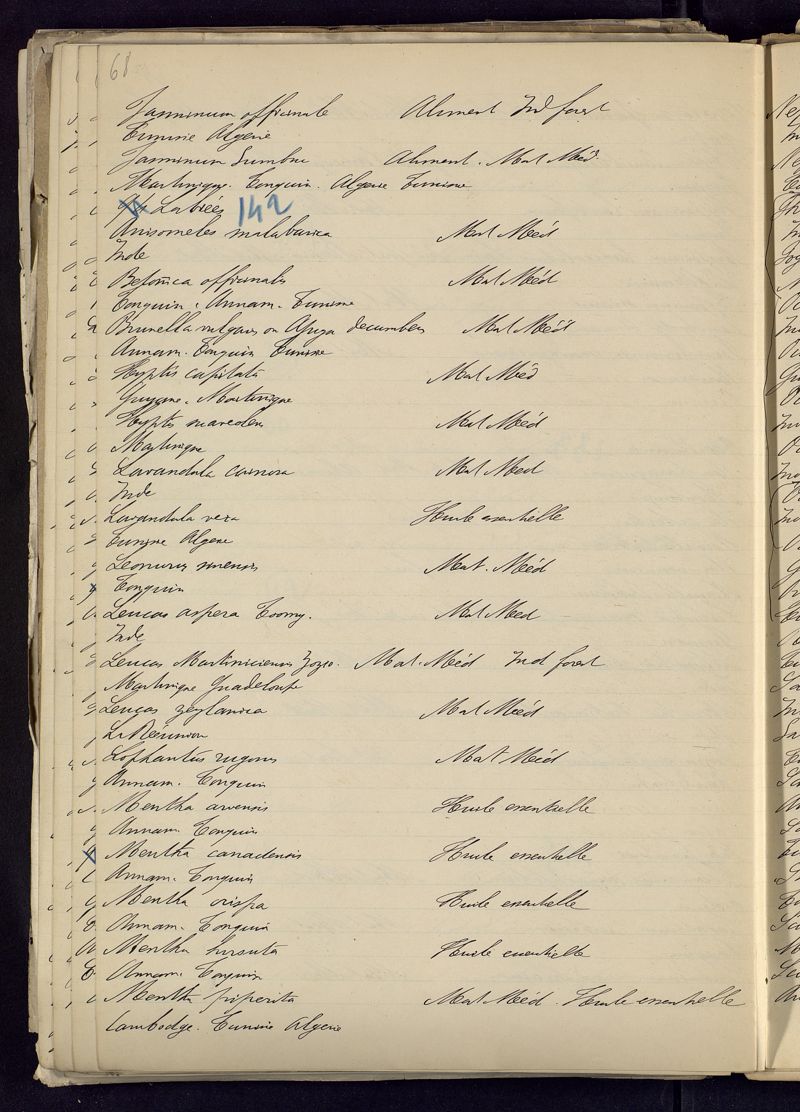 68
Jasminum officinale Aliment Ind forest
Tunisie Algerie
Jasminum Sambac Aliment. Mat Méd
Martinique. Tonquin. Algerie Tunisie
Labiées 142
Anisometes malabarica Mat Méd
Inde
Betonica officinalis Mat Méd
Tonquin. Annam. Tunisie
Brunella vulgaris ou Ajuga decumbens Mat Méd
Annam. Tonquin Tunisie
Hyptis capitata Mat Méd
Guyane. Martinique
Hyptis suaveolens Mat Méd
Martinique
Lavandula carnosa Mat Méd
Inde
Lavandula vera Huile essentielle
Tunisie Algerie
Leonurus sinensis Mat. Méd
Tonquin
Leucas aspera Mat Med
Inde
Leucas Martinicensis Mat. Méd Ind forest
Martinique Guadeloupe
Leucas zeylanica Mat Méd
La Réunion
Lophantus rugosus Mat Méd
Annam. Tonquin
Mentha arvensis Huile essentielle
Annam. Tonquin
Mentha canadensis Huile essentielle
Annam. Tonquin
Mentha crispa Huile essentielle
Annam. Tonquin
Mentha hirsuta Huile essentielle
Annam. Tonquin
Mentha piperita Mat Méd. Huile essentielle
Cambodge. Tunisie Algerie